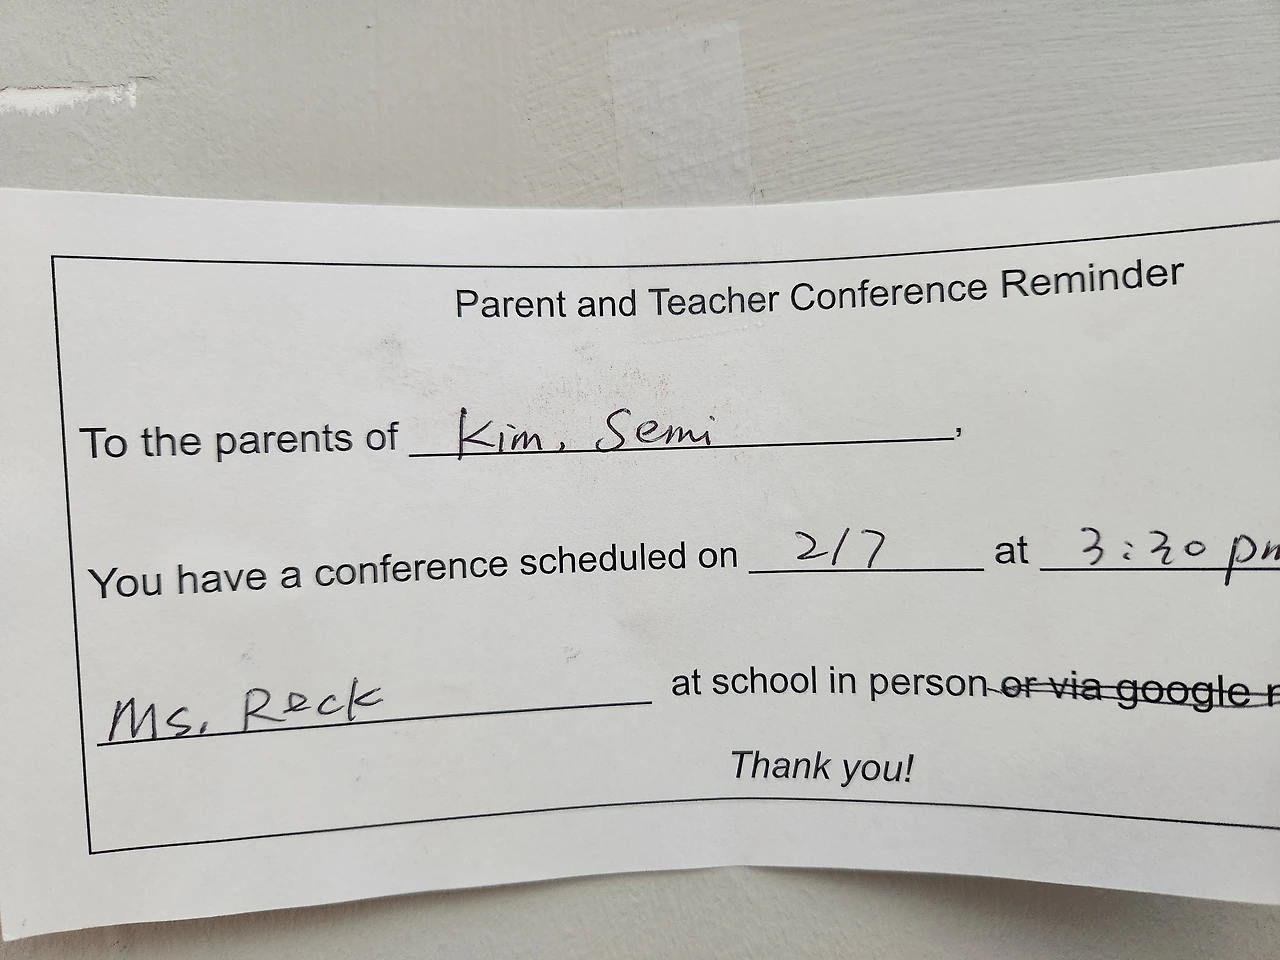 Parent and Teacher Conference Reminder
To the parents of Kim, Semi,
You have a conference scheduled on 2/7 at 3:30 pm
Ms. Reck at school in person or via google
Thank you!